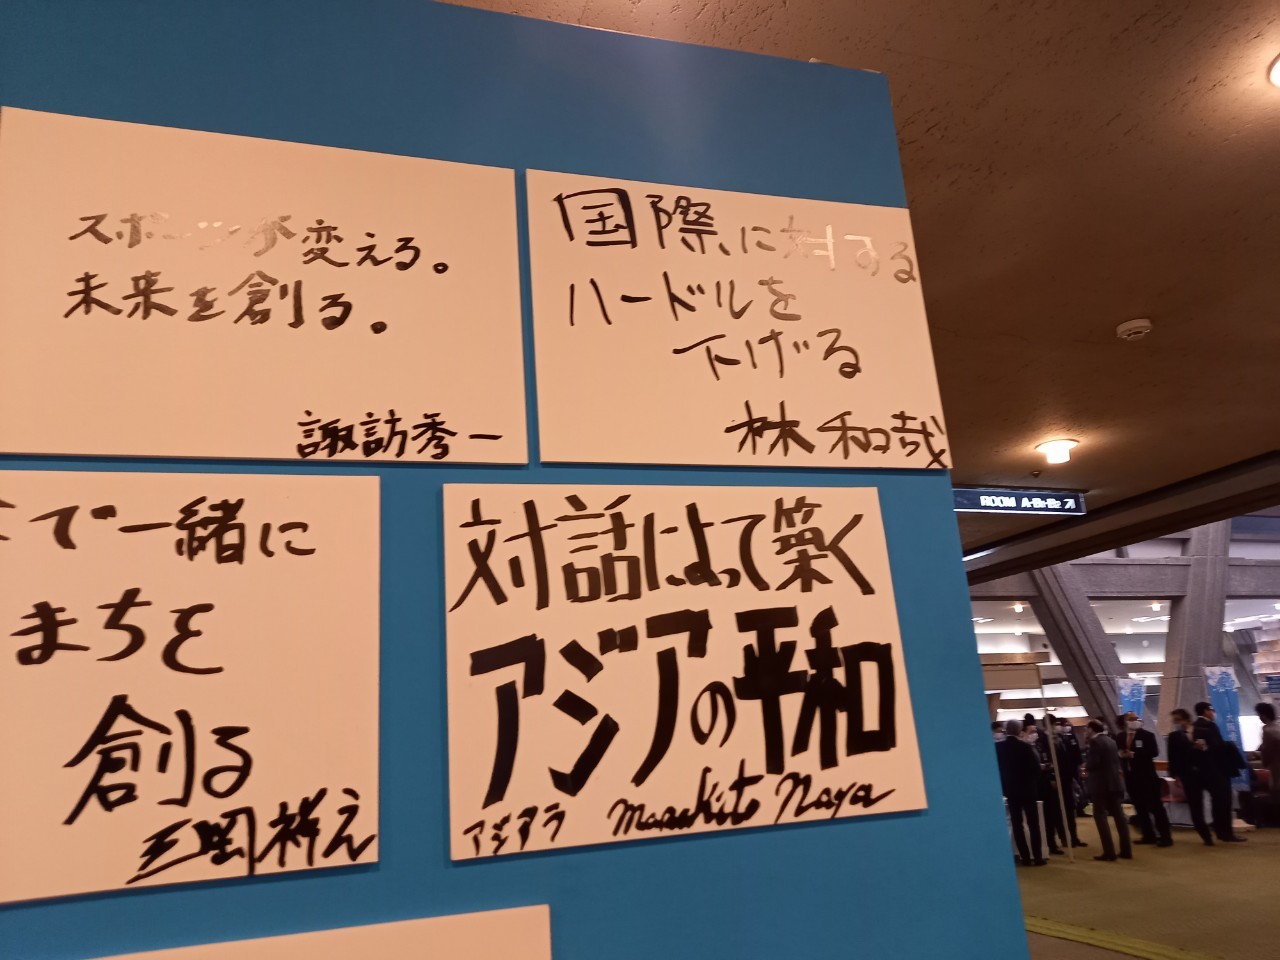 スポーツが変える。
未来を創る。
諏訪秀一
国際に対する
ハードルを
下げる
林 和哉
で一緒に
まちを
創る
三岡祥え
対話によって築く
アジアの平和
アジアラ Masakito Naya
ROOM A・B1・B2